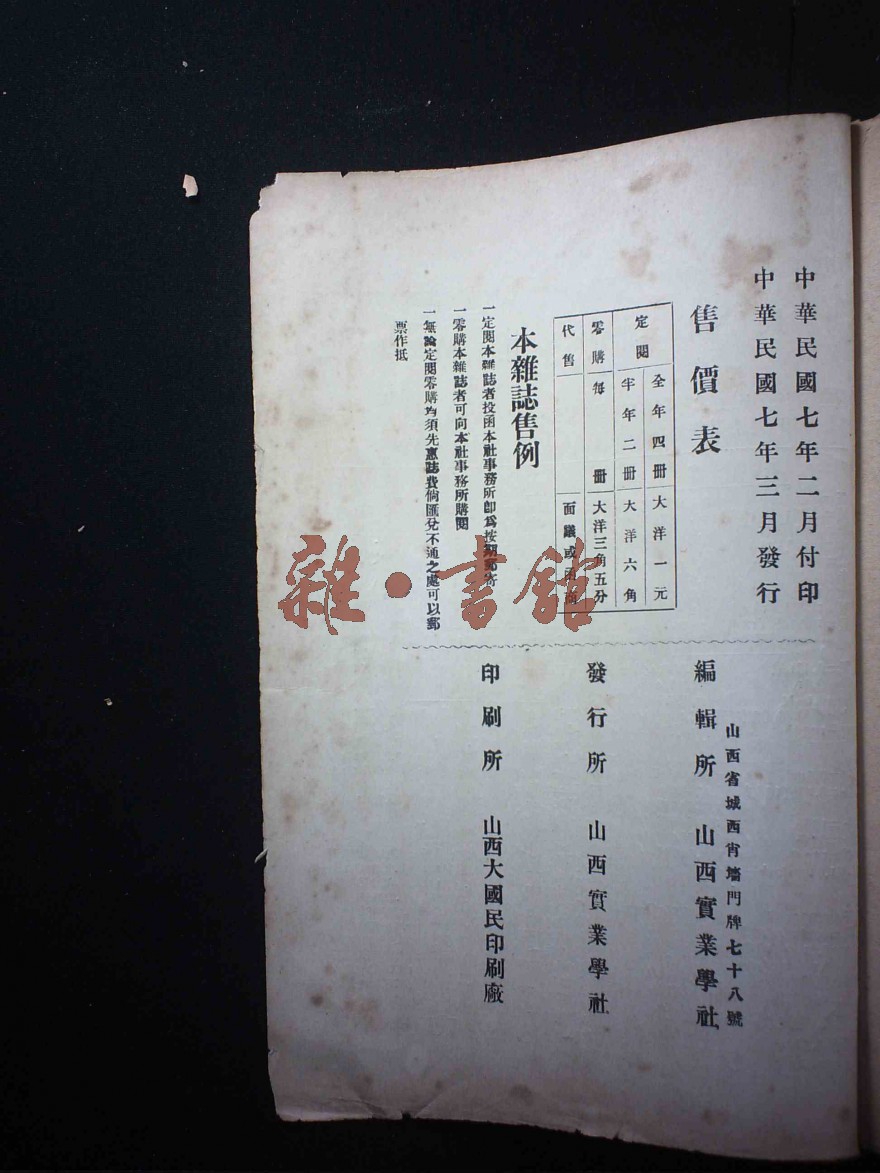 中華民國七年二月付印
中華民國七年三月發行
售價表
定閱
全年四冊 大洋一元
半年二冊 大洋六角
零購 每冊 大洋三角五分
代售 面議或函商
本雜誌售例
一定閱本雜誌者投函本社事務所卽爲按期郵寄
一零購本雜誌者可向本社事務所購閱
一無論定閱零購均須先惠誌費倘匯兌不通之處可以郵
票作抵
山西省城西肖墻門牌七十八號
編輯所 山西實業學社
發行所 山西實業學社
印刷所 山西大國民印刷廠
雜·書館